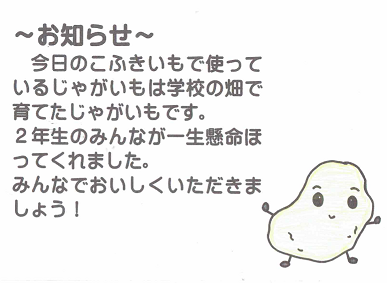 ～お知らせ～
　今日のこふきいもで使って
いるじゃがいもは学校の畑で
育てたじゃがいもです。
２年生のみんなが一生懸命ほ
ってくれました。
みんなでおいしくいただきま
しょう！